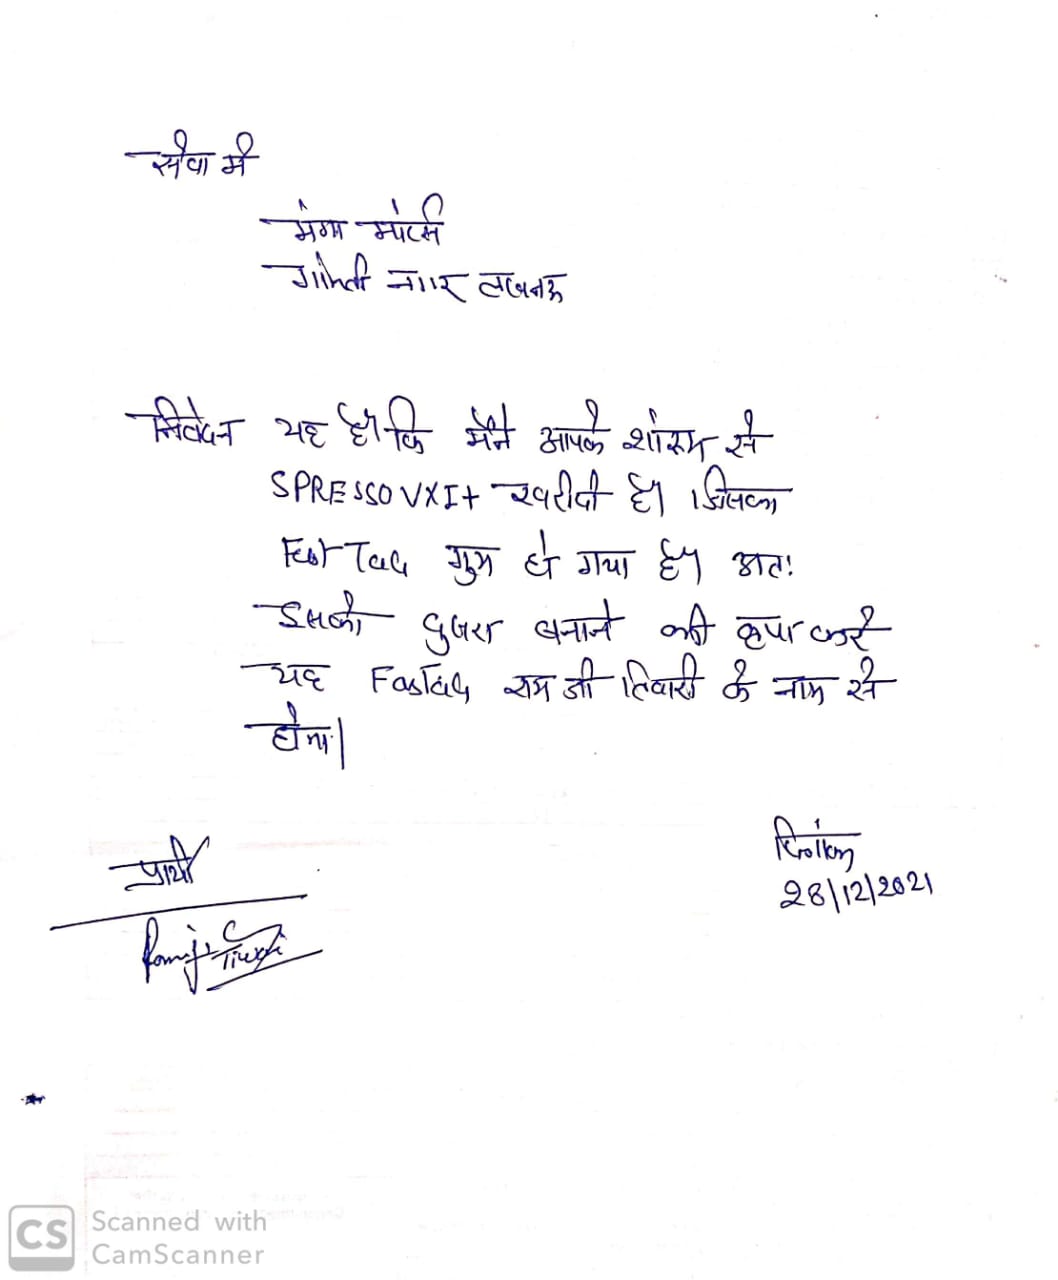 सेवा में
मंगा मोटर्स
गोमती नगर लखनऊ
निवेदन यह है कि मैंने आपके शोरूम से
SPRESSO VXI+ खरीदी है। जिसका
Fast Tag गुम हो गया है। अतः
इसको दुबारा बनाने की कृपा करें
यह FasTag राम जी तिवारी के नाम से
होगा।
प्रार्थी
दिनांक
28/12/2021
Ramji Tiwari
CS Scanned with
CamScanner